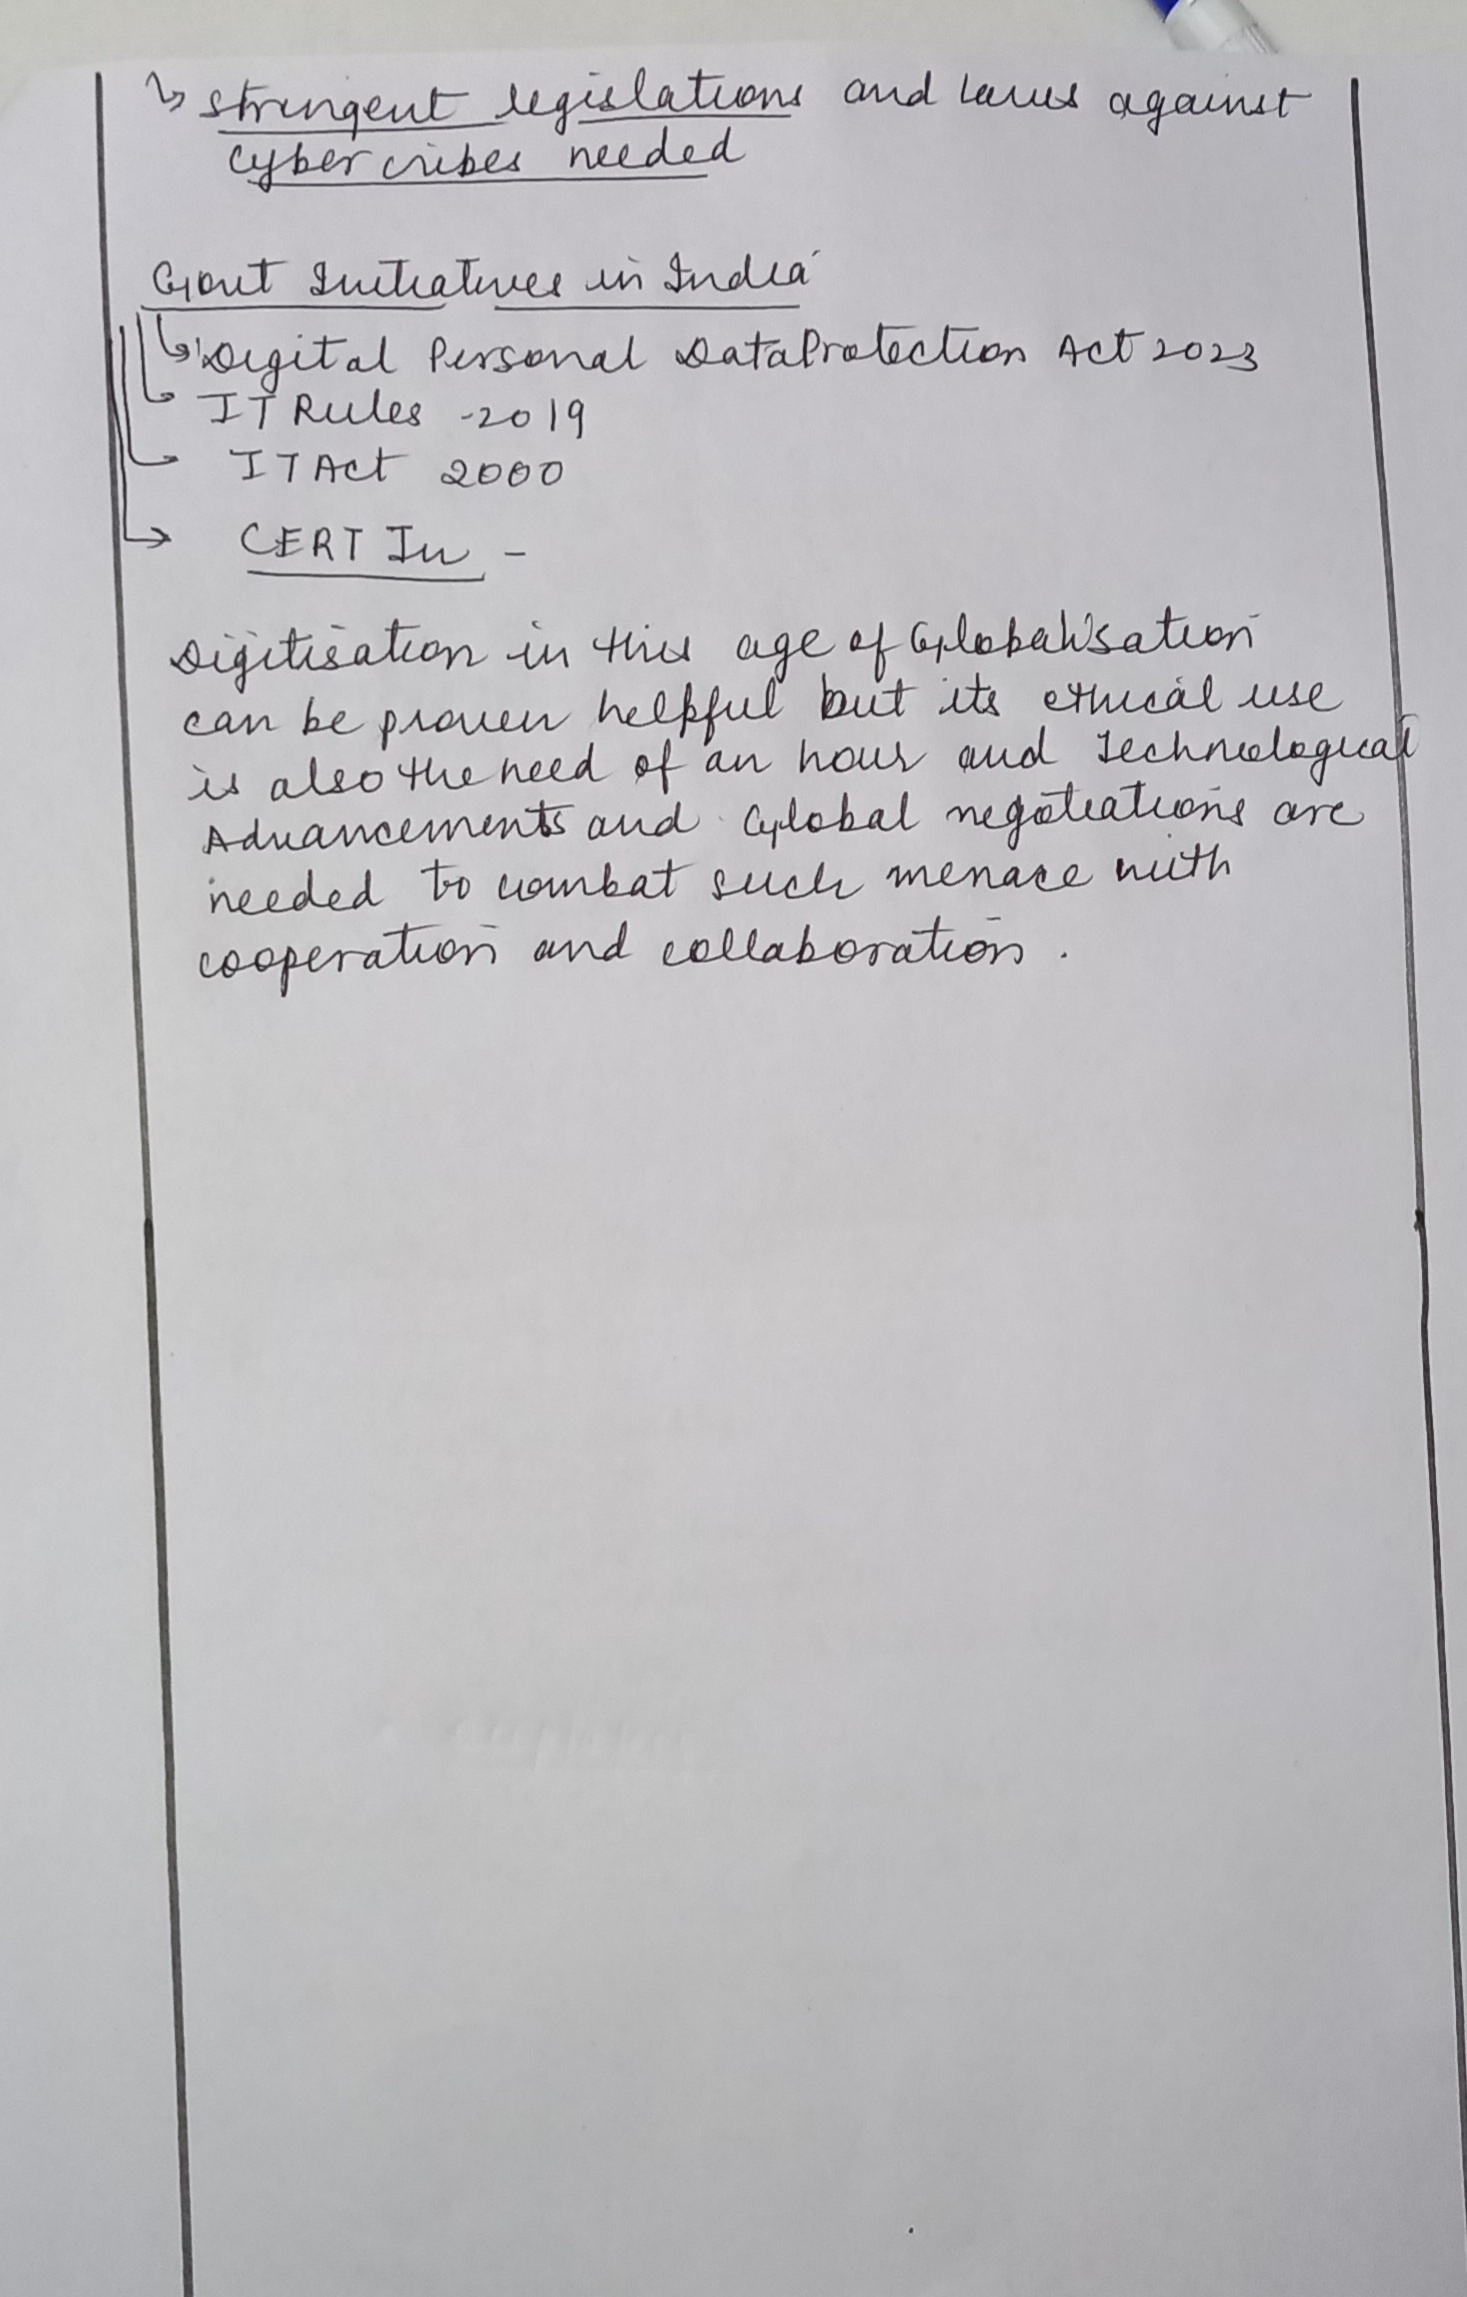 ↳ stringent legislations and laws against
cyber cribes needed
Govt Initiatives in India
↳ Digital Personal Data Protection Act 2023
IT Rules - 2019
IT Act 2000
→ CERT In -
Digitisation in this age of Globalisation
can be proven helpful but its ethical use
is also the need of an hour and Technological
Advancements and Global negotiations are
needed to combat such menace with
cooperation and collaboration.